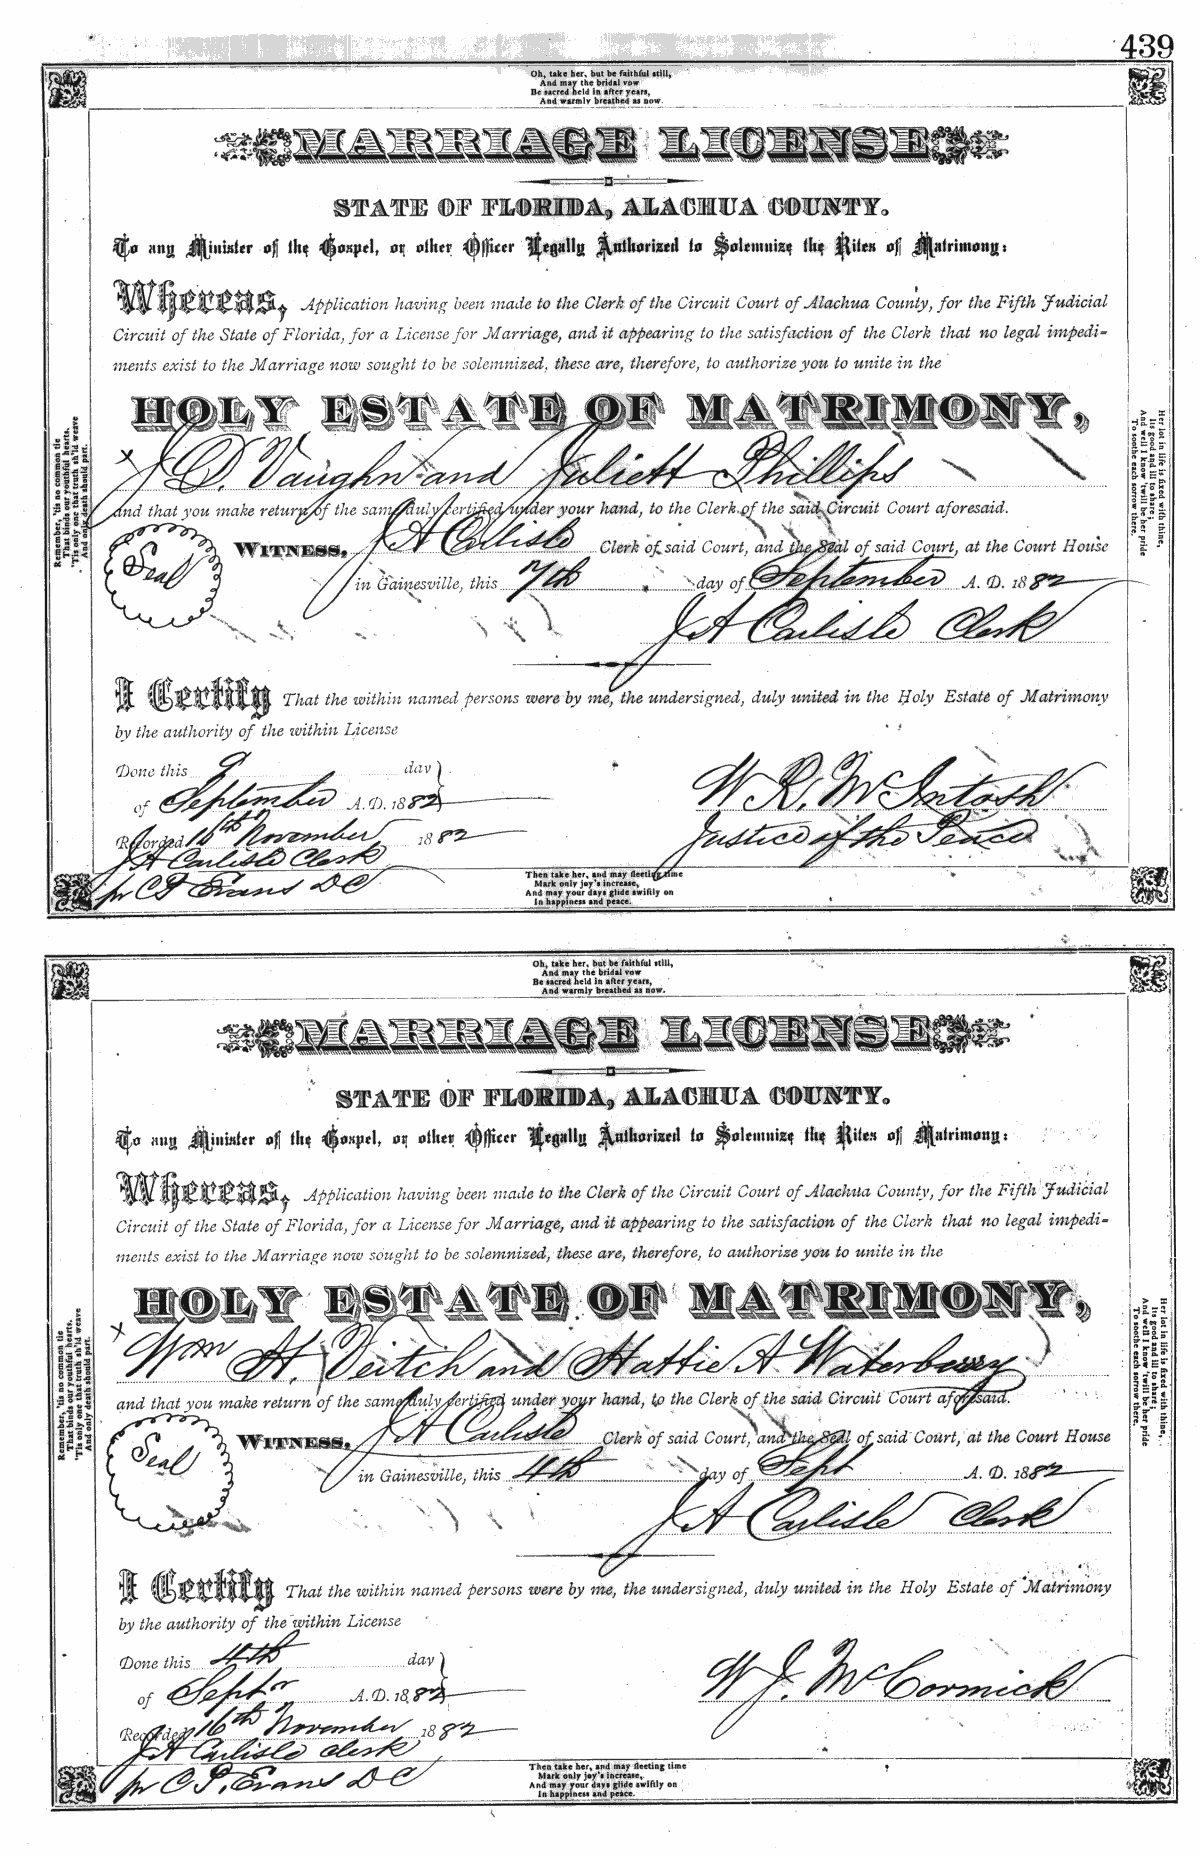 439
Oh, take her, but be faithful still,
And may the bridal vow
Be sacred held in after years,
And warmly breathed as now.
MARRIAGE LICENSE
STATE OF FLORIDA, ALACHUA COUNTY.
To any Minister of the Gospel, or other Officer Legally Authorized to Solemnize the Rites of Matrimony:
Whereas, Application having been made to the Clerk of the Circuit Court of Alachua County, for the Fifth Judicial
Circuit of the State of Florida, for a License for Marriage, and it appearing to the satisfaction of the Clerk that no legal impedi-
ments exist to the Marriage now sought to be solemnized, these are, therefore, to authorize you to unite in the
HOLY ESTATE OF MATRIMONY,
x J. D. Vaughn and Juliett Phillips
and that you make return of the same duly certified under your hand, to the Clerk of the said Circuit Court aforesaid.
Seal
WITNESS, J A Carlisle Clerk of said Court, and the Seal of said Court, at the Court House
in Gainesville, this 7th day of September A. D. 1882
J A Carlisle Clerk
I Certify That the within named persons were by me, the undersigned, duly united in the Holy Estate of Matrimony
by the authority of the within License
Done this 9 day
of September A.D. 1882
W R. McIntosh
Recorded 16th November 1882
Justice of the Peace
J A Carlisle Clerk
pr C P Evans DC
Then take her, and may fleeting time
Mark only joy's increase,
And may your days glide swiftly on
In happiness and peace.
Remember, 'tis no common tie
That binds our youthful hearts.
'Tis only one that truth sh'ld weave
And only death should part.
Her lot in life is fixed with thine,
Its good and ill to share;
And well I know 'twill be her pride
To soothe each sorrow there.
Oh, take her, but be faithful still,
And may the bridal vow
Be sacred held in after years,
And warmly breathed as now.
MARRIAGE LICENSE
STATE OF FLORIDA, ALACHUA COUNTY.
To any Minister of the Gospel, or other Officer Legally Authorized to Solemnize the Rites of Matrimony:
Whereas, Application having been made to the Clerk of the Circuit Court of Alachua County, for the Fifth Judicial
Circuit of the State of Florida, for a License for Marriage, and it appearing to the satisfaction of the Clerk that no legal impedi-
ments exist to the Marriage now sought to be solemnized, these are, therefore, to authorize you to unite in the
HOLY ESTATE OF MATRIMONY,
x Wm H. Veitch and Hattie A Waterbury
and that you make return of the same duly certified under your hand, to the Clerk of the said Circuit Court aforesaid.
Seal
WITNESS, J A Carlisle Clerk of said Court, and the Seal of said Court, at the Court House
in Gainesville, this 4th day of Sept A. D. 1882
J A Carlisle Clerk
I Certify That the within named persons were by me, the undersigned, duly united in the Holy Estate of Matrimony
by the authority of the within License
Done this 4th day
of Septr A.D. 1882
W J. McCormick
Recorded 16th November 1882
J A Carlisle Clerk
pr C P. Evans DC
Then take her, and may fleeting time
Mark only joy's increase,
And may your days glide swiftly on
In happiness and peace.
Remember, 'tis no common tie
That binds our youthful hearts.
'Tis only one that truth sh'ld weave
And only death should part.
Her lot in life is fixed with thine,
Its good and ill to share;
And well I know 'twill be her pride
To soothe each sorrow there.